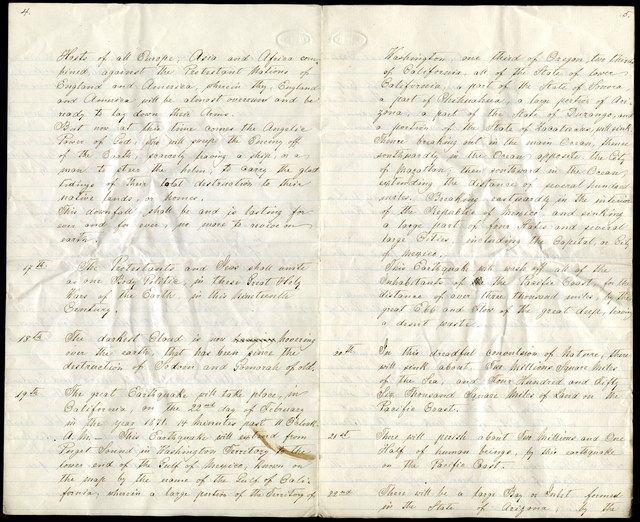 4.
Hosts of all Europe, Asia and Africa com
bined, against the Protestant Nations of
England and America, wherein they, England
and America will be almost overcome and be
ready to lay down their Arms.
But now at this time comes the Angelic
Power of God, who will sweep the Enemy off
of the Earth, scarcely leaving a ship, or a
man to steer the helm, to carry the glad
tidings of their total destruction to their
native lands, or homes.
This downfall shall be and is lasting for
ever and for ever, no more to revive on
earth.
17th. The Protestants and Jews shall unite
as one Body Politic, in these Great Holy
Wars of the Earth, in this Nineteenth
Century.
18th The darkest Cloud is now hovering
over the earth, that has been since the
destruction of Sodom and Gomorah of old.
19th The great Earthquake will take place, in
California, on the 22nd day of February
in the year 1871. 14 minutes past 11 O'clock
A.M. This Earthquake will extend from
Puget Sound in Washington Territory to the
lower end of the Gulf of Mexico, known on
the map by the name of the Gulf of Cali-
fornia, wherein a large portion of the Territory of
5.
Washington, and third of Oregon, two thirds
of California, all of the State of lower
California, a part of the State of Sonora
a part of Chihuahua, a large portion of Ari
zona, a part of the State of Durango, and
a portion of the State of will sink
thence breaking out in the main Ocean, thence
southwardly in the Ocean opposite the City
of Mazatlan, then southward in the Ocean,
extending the distance of several hundred
miles. Breaking eastwardly in the interior
of the Republic of Mexico, and sinking
a large part of four States and several
large Cities, including the Capital, or City
of Mexico.
This Earthquake will wash off all of the
Inhabitants of the Pacific Coast for the
distance of over three thousand miles, by the
great Ebb and Flow of the great deep, leaving
a desert waste.
20th In this dreadful convulsion of Nature, there
will sink about, Six Millions Square Miles
of the Sea, and Four Hundred and Fifty
Six Thousand Square Miles of Land on the
Pacific Coast.
21st There will perish about Two Millions and One
Half of human beings, by this earthquake
on the Pacific Coast.
22nd There will be a large Bay or Inlet formed
in the State of Arizona, by the